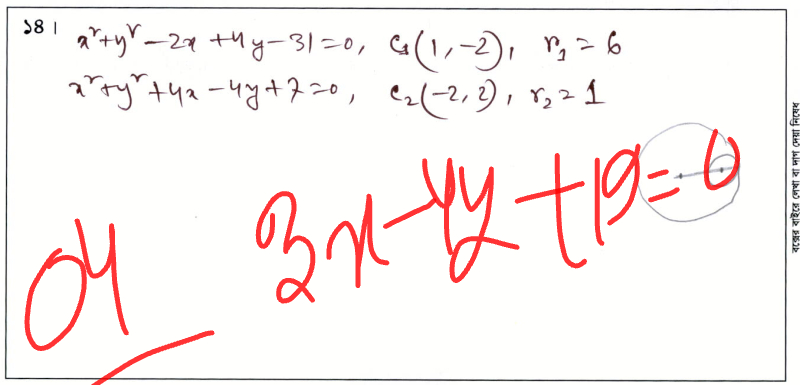 ১৪।
x²+y²-2x+4y-31=0, C₁(1,-2), r₁=6
x²+y²+4x-4y+7=0, C₂(-2,2), r₂=1
3x-4y+19=0
04
বক্সের বাইরে লেখা বা দাগ দেয়া নিষেধ